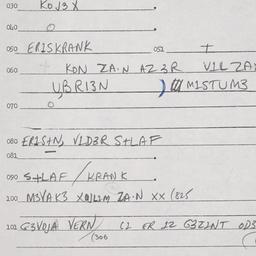 030 KOJ3X
040 O
050 ER1SKRANK 051 +
060 KON ZA·N AZ3R V1LZA
U,BR13N M1STUM3
070 O
080 ER1S+N, V1D3R S+LAF
081
090 S+LAF / KRANK
100 M3VAK3 ZA·N XX (825
101 G3VOJA VERN (306 C2 ER 1Z G3Z1NT OD3